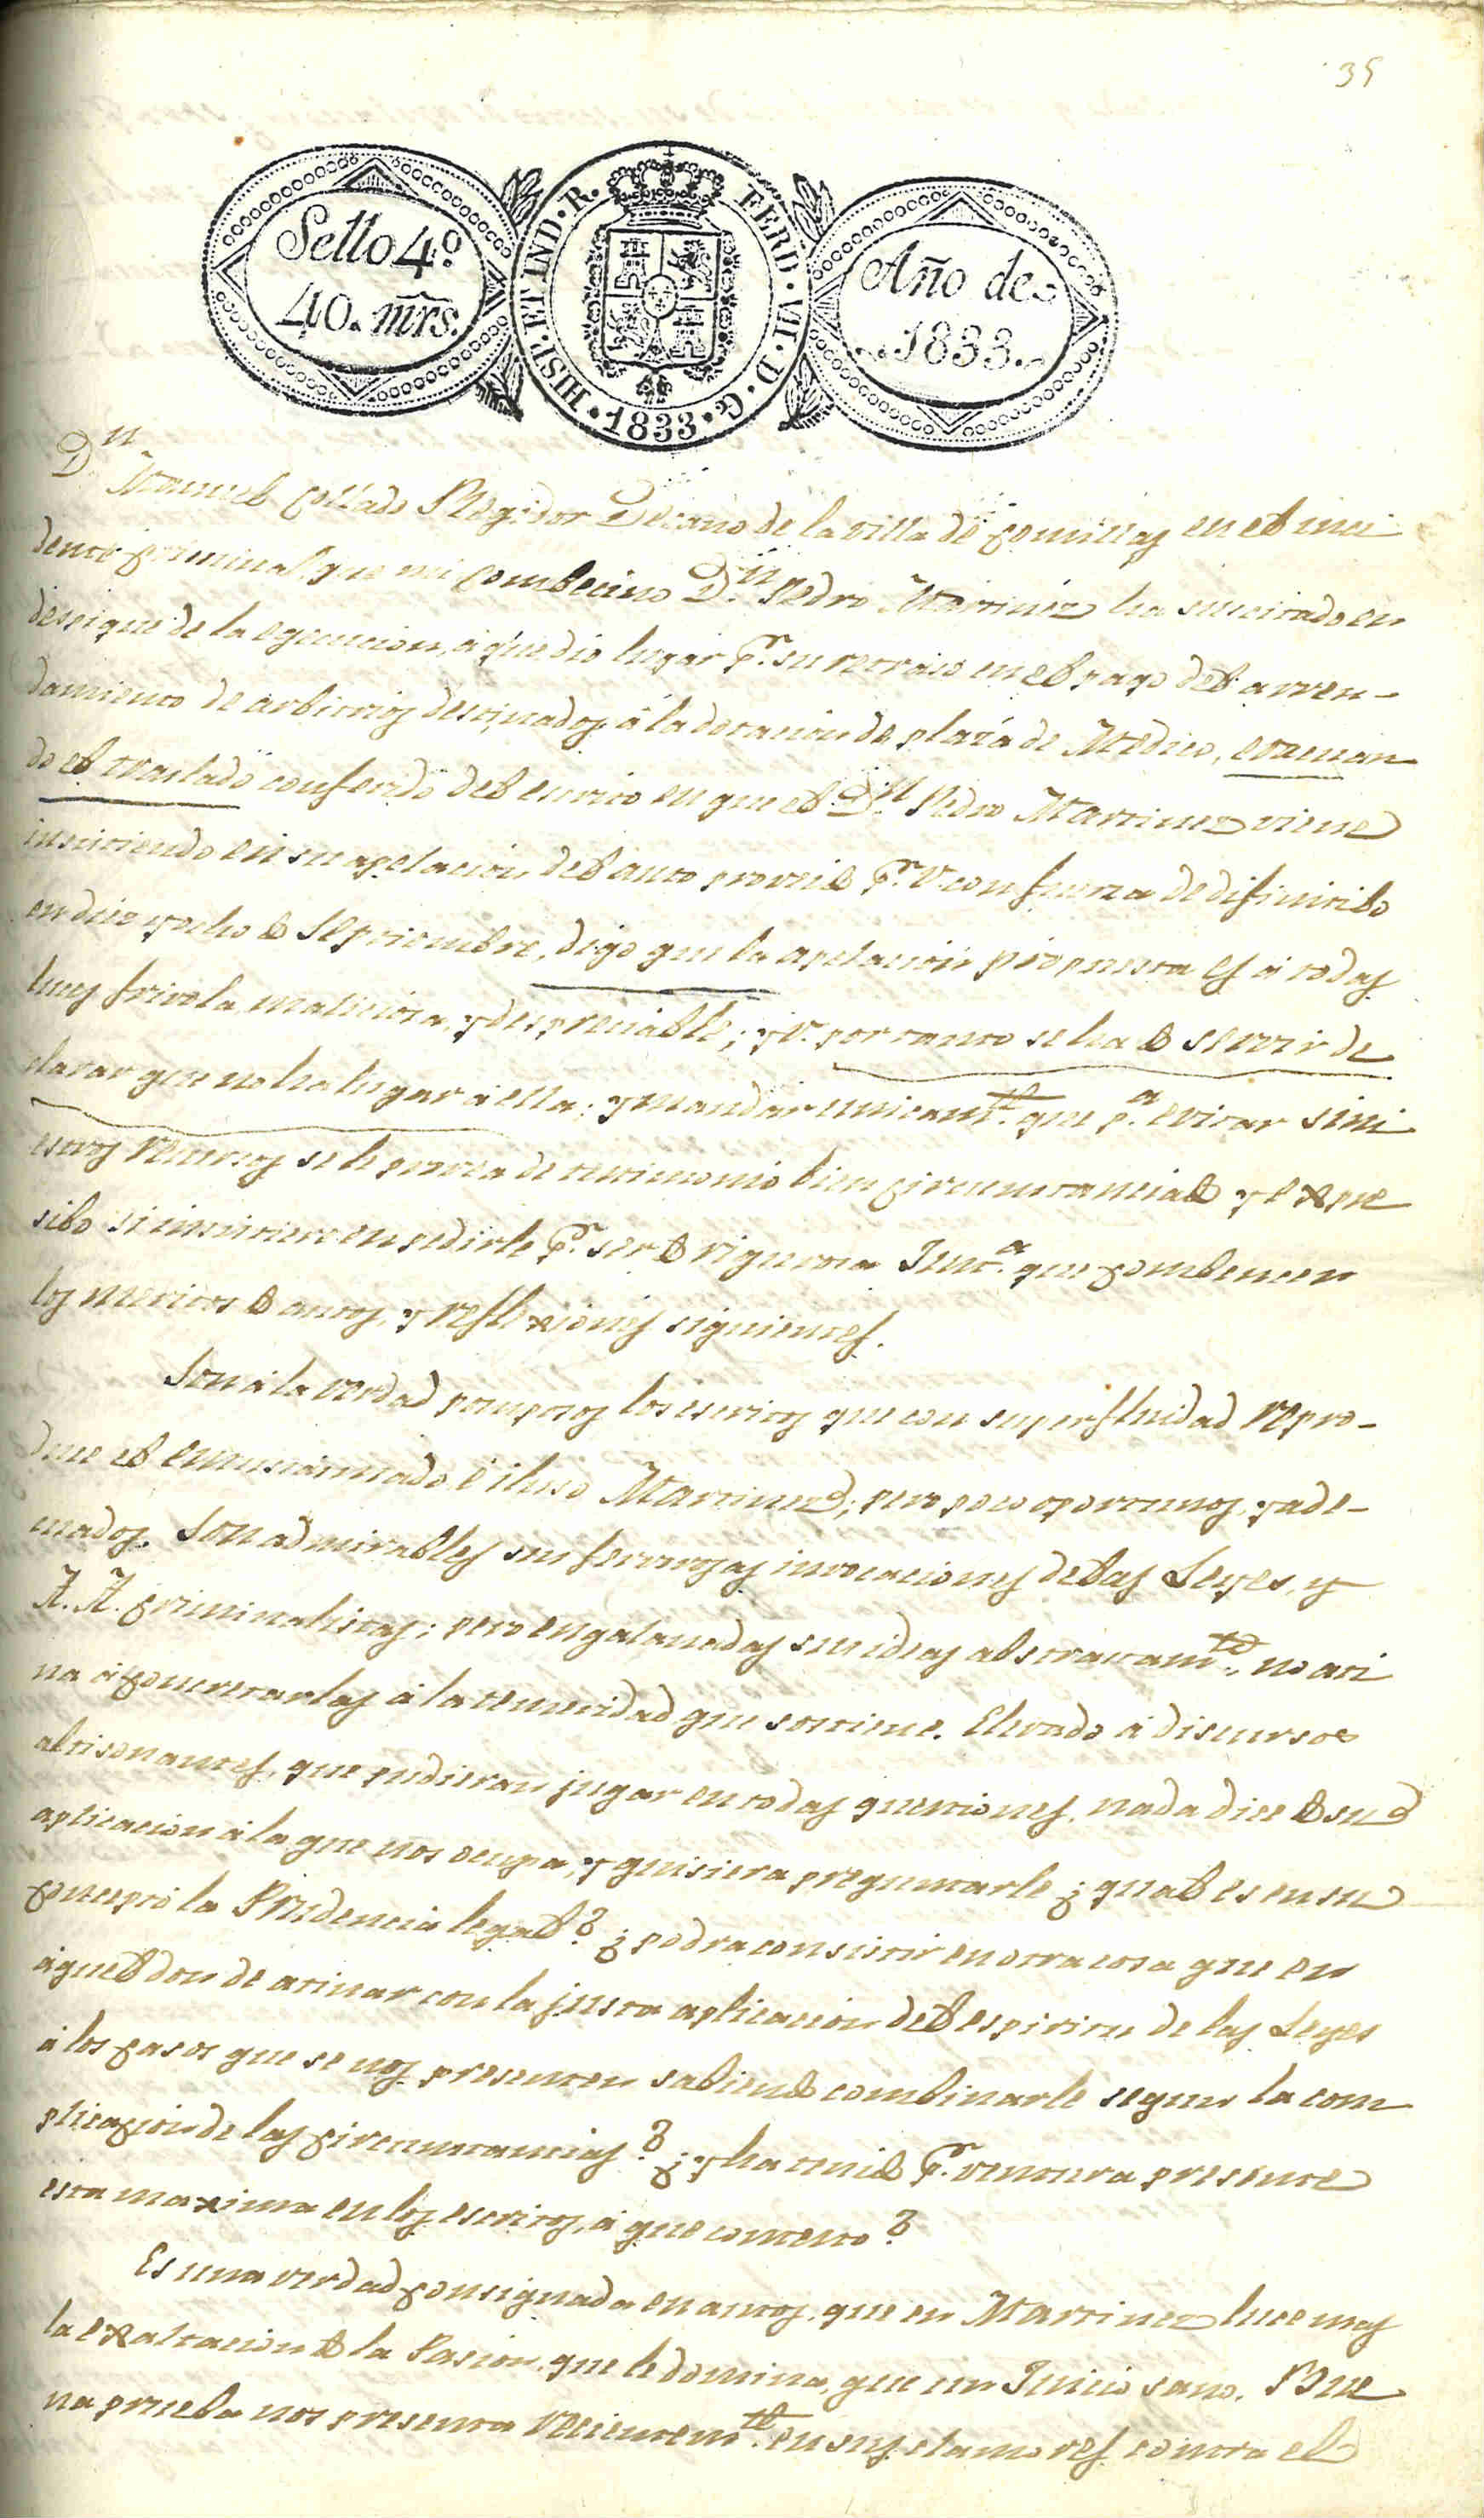 35
Sello 4º
40. mrs.
HISP. ET IND. R. FERD. VII. D. G. 1833
Año de
1833.
Dn. Manuel Collado Regidor Decano de la villa de Comillas en el inci
dente criminal, que mi combecino Dn. Pedro Martinez ha suscitado en
despique de la egecucion, á que dió lugar pr. su retraso en el pago del arren-
damiento de arbitrios destinados á la dotacion de plaza de Medico, evacuan
do el traslado conferido del escrito en que el Dn. Pedro Martinez viene
insistiendo en su apelacion del auto proveido pr. V. con fuerza de difinitibo
en diez y ocho de Septiembre, digo que la apelacion propuesta es á todas
luces frivola, maliciosa, y despreciable; y V. por tanto se ha de servir de
clarar que no ha lugar á ella; y mandar unicamte. que pa. evitar sini
estros recursos se le provea de testimonio bien circunstanciado y expre
sibo si insistiere en pedirle pr. ser de rigurosa Justa. que combencen
los meritos de autos, y reflexiones siguientes.
Son á la verdad pomposos los escritos que con superfluidad repro-
duce el entusiasmado é iluso Martinez; pero poco oportunos, y ade-
cuados. Son admirables sus fervorosas invocaciones de las Leyes, y
A. A. criminalistas; pero engalanadas sus ideas abstractamte., no ati
na á concretarlas á la temeridad que sostiene. Elevado á discursos
altisonantes, que pudieran jugar en todas questiones, nada dice de su
aplicacion á la que nos ocupa, y quisiera preguntarle ¿qual es en su
concepto la Prudencia legal? ¿podra consistir en otra cosa que en
aquel don de atinar con la justa aplicacion del espiritu de las Leyes
á los casos que se nos presenten sabiendo combinarle segun la com
plicacion de las circunstancias? ¿y ha tenido pr. ventura presente
esta maxima en los escritos, á que contesto?
Es una verdad consignada en autos, que en Martinez luce mas
la exaltacion de la Pasion, que le domina, que un Juicio sano. Bue
na prueba nos presenta recientemte. en sus clamores contra el